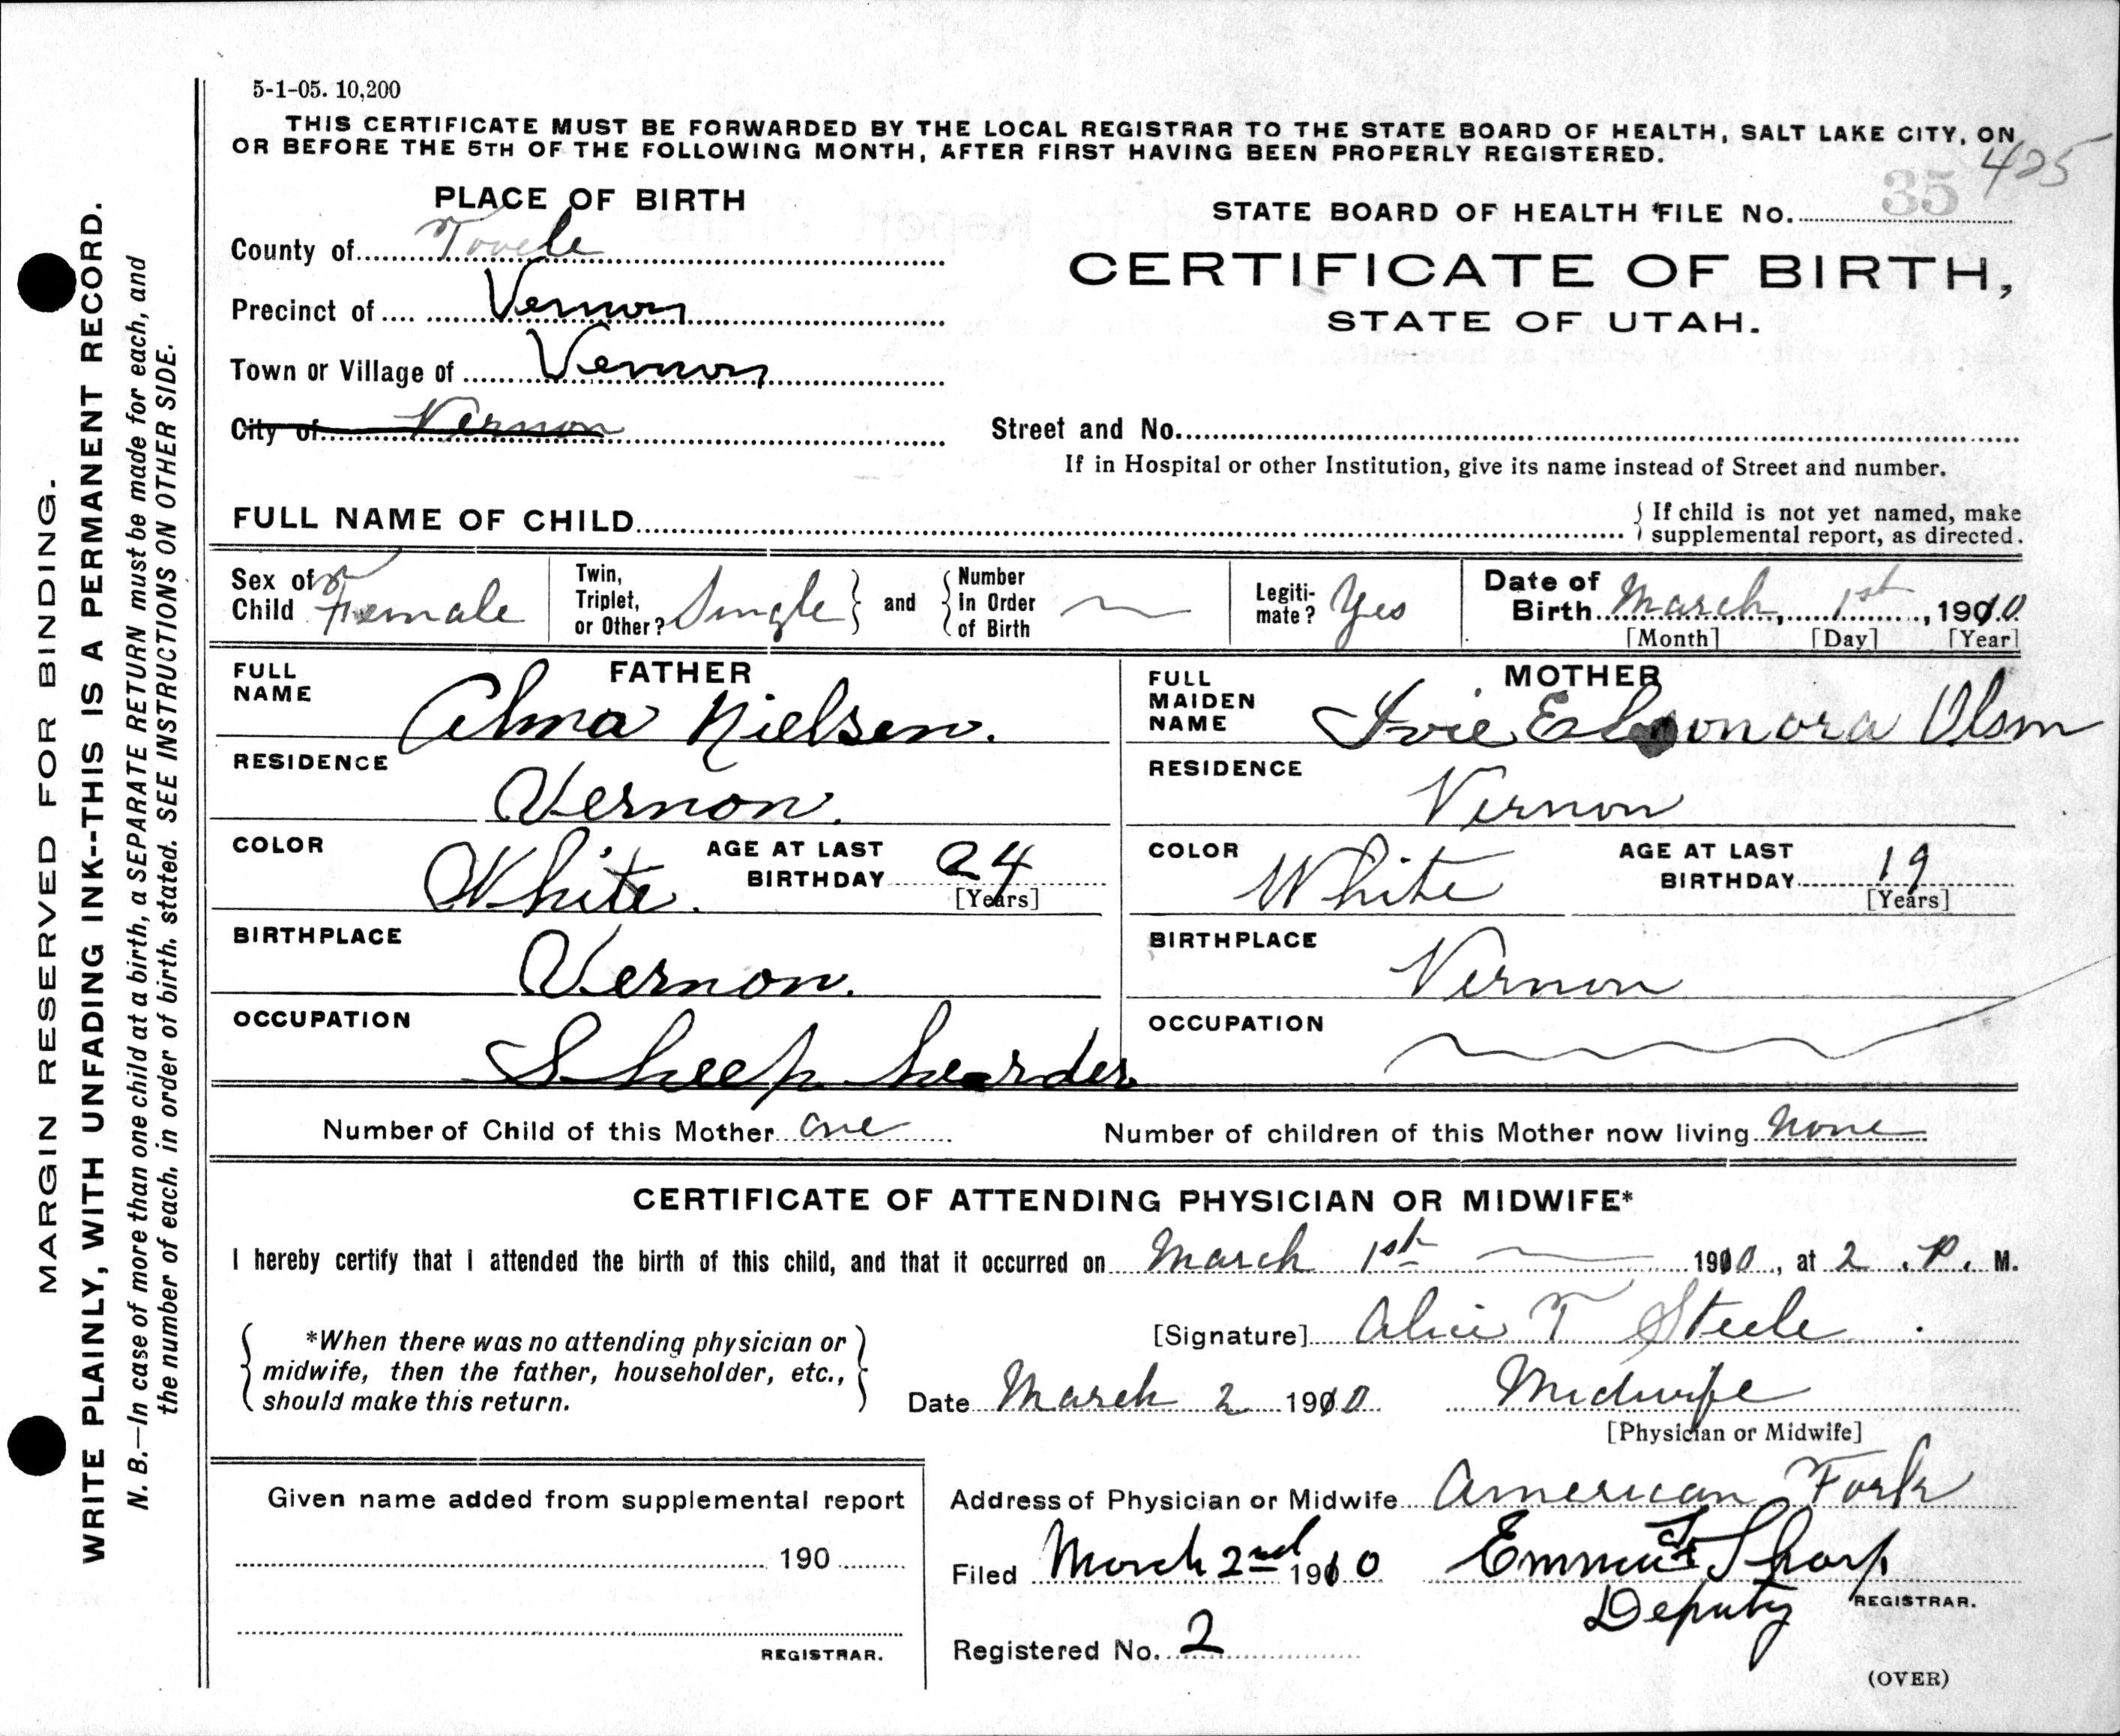 5-1-05. 10,200
THIS CERTIFICATE MUST BE FORWARDED BY THE LOCAL REGISTRAR TO THE STATE BOARD OF HEALTH, SALT LAKE CITY, ON
OR BEFORE THE 5TH OF THE FOLLOWING MONTH, AFTER FIRST HAVING BEEN PROPERLY REGISTERED.
PLACE OF BIRTH
STATE BOARD OF HEALTH FILE No. 35 425
County of Tooele
CERTIFICATE OF BIRTH,
STATE OF UTAH.
Precinct of Vernon
Town or Village of Vernon
City of Vernon
Street and No.
If in Hospital or other Institution, give its name instead of Street and number.
FULL NAME OF CHILD
If child is not yet named, make
supplemental report, as directed.
Sex of Child Female
Twin, Triplet, or Other? Single and Number in Order of Birth
Legiti-mate? Yes
Date of Birth March, 1st, 1910
[Month] [Day] [Year]
FATHER
FULL NAME Alma Nielsen.
RESIDENCE Vernon.
COLOR White. AGE AT LAST BIRTHDAY 24
[Years]
BIRTHPLACE Vernon.
OCCUPATION Sheep hearder
MOTHER
FULL MAIDEN NAME Ivie Eleonora Olson
RESIDENCE Vernon
COLOR White AGE AT LAST BIRTHDAY 19
[Years]
BIRTHPLACE Vernon
OCCUPATION
Number of Child of this Mother one Number of children of this Mother now living none
CERTIFICATE OF ATTENDING PHYSICIAN OR MIDWIFE*
I hereby certify that I attended the birth of this child, and that it occurred on March 1st 1910, at 2 . P. M.
*When there was no attending physician or
midwife, then the father, householder, etc.,
should make this return.
[Signature] Alice T Steele
Date March 2 1910 Midwife
[Physician or Midwife]
Given name added from supplemental report
190
REGISTRAR.
Address of Physician or Midwife American Fork
Filed March 2nd 1910 Emma Sharp
Deputy REGISTRAR.
Registered No. 2
(OVER)
MARGIN RESERVED FOR BINDING.
WRITE PLAINLY, WITH UNFADING INK--THIS IS A PERMANENT RECORD.
N. B.—In case of more than one child at a birth, a SEPARATE RETURN must be made for each, and
the number of each, in order of birth, stated. SEE INSTRUCTIONS ON OTHER SIDE.